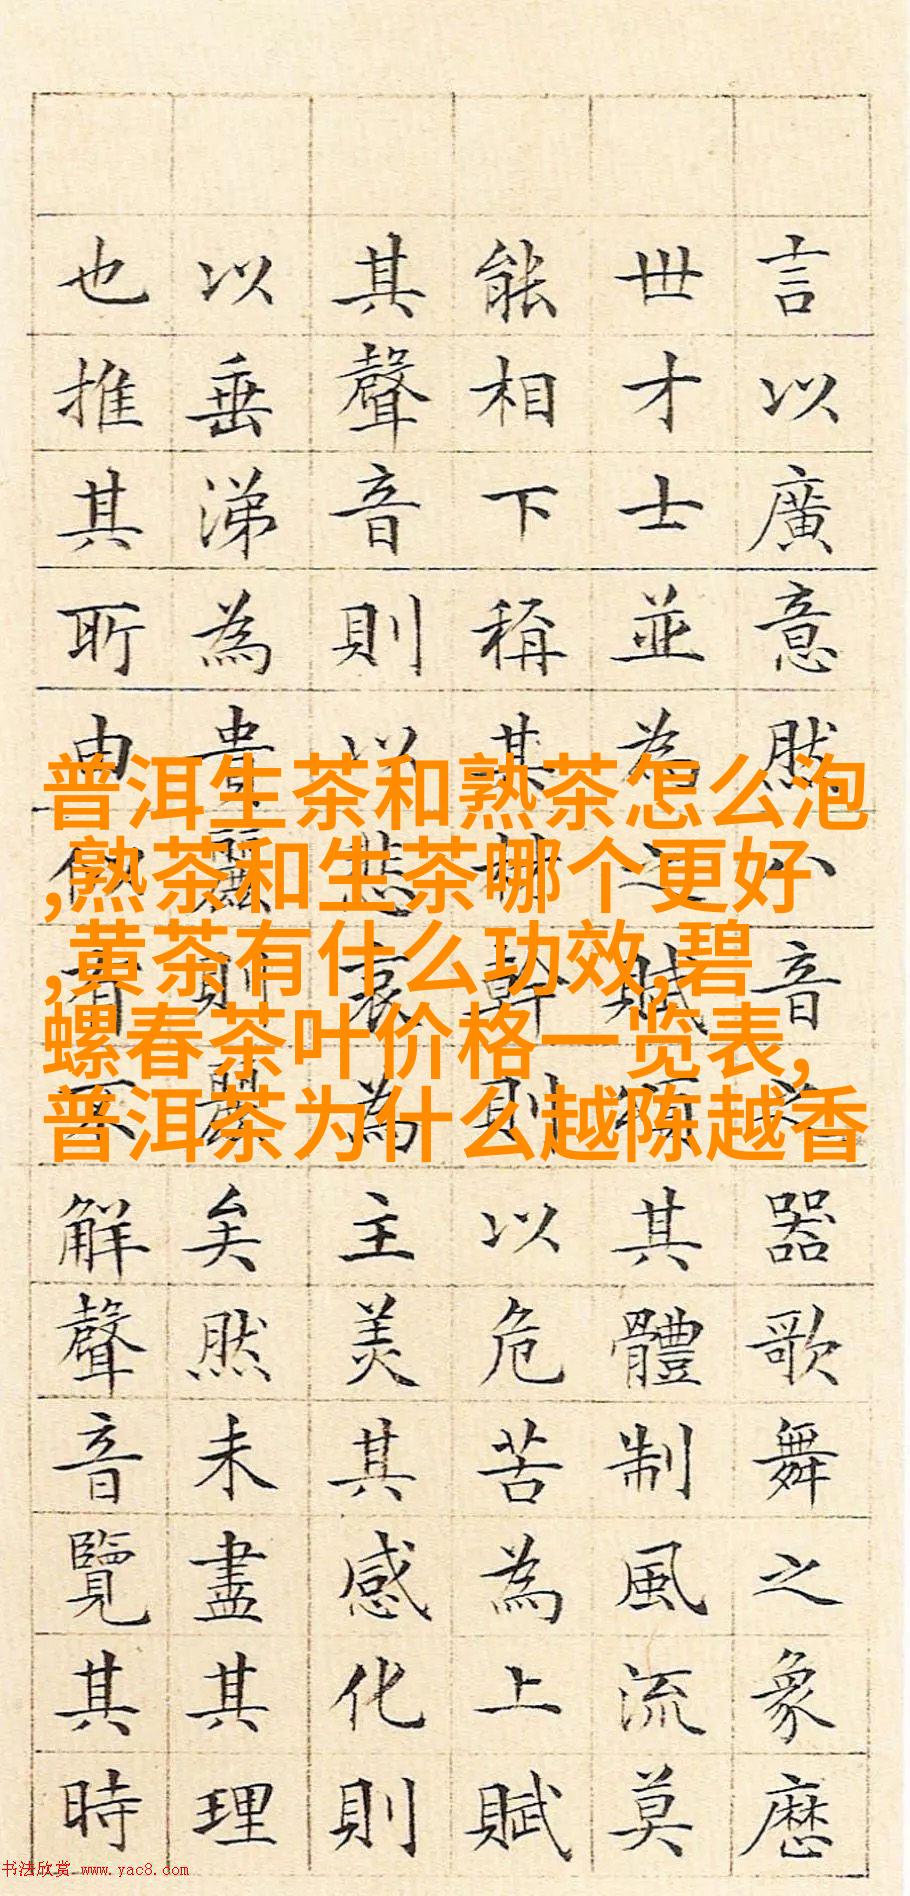 普洱生茶和熟茶怎么泡
,熟茶和生茶哪个更好
,黄茶有什么功效,碧
螺春茶叶价格一览表,
普洱茶为什么越陈越香
言以廣意然八音之器歌舞之象歷
世才士並為之賦頌其體制風流莫
能相下稱其材幹則以危苦為上賦
其聲音則以悲哀為主美其感化則
以垂涕為貴麗則麗矣然未盡其理
也推其所由似不解聲音覽其時
书法欣赏 www.yac8.com